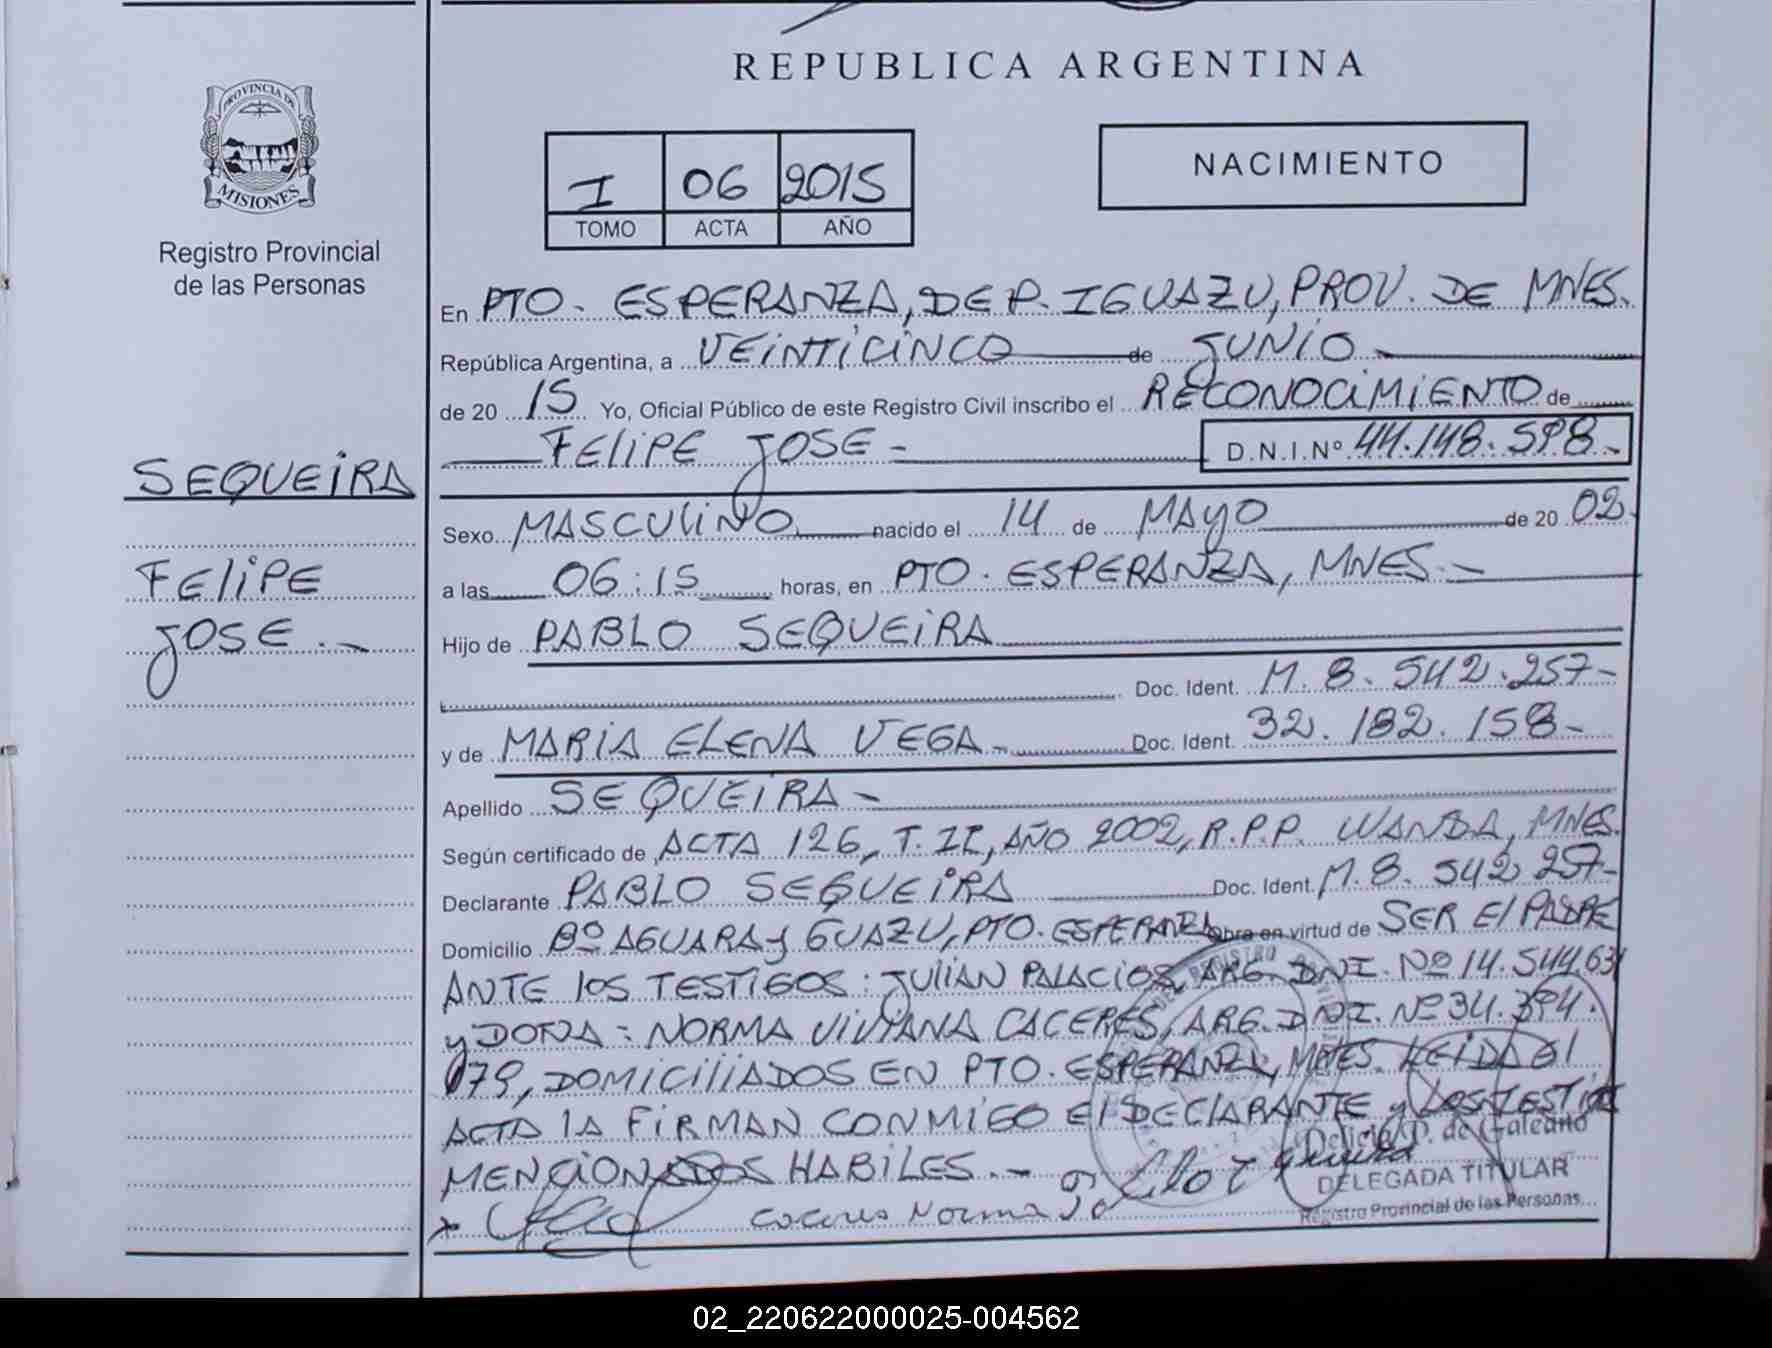 REPUBLICA ARGENTINA
PROVINCIA DE
MISIONES
Registro Provincial
de las Personas
I 06 2015
TOMO ACTA AÑO
NACIMIENTO
En PTO. ESPERANZA, DEP. IGUAZU, PROV. DE MNES.
República Argentina, a VEINTICINCO de JUNIO
de 20 15 Yo, Oficial Público de este Registro Civil inscribo el RECONOCIMIENTO de
FELIPE JOSE - D.N.I.Nº 44.148.598-
SEQUEIRA
FELIPE
JOSE.-
Sexo MASCULINO nacido el 14 de MAYO de 20 02
a las 06:15 horas, en PTO. ESPERANZA, MNES.-
Hijo de PABLO SEQUEIRA
Doc. Ident. M. 8. 542.257-
y de MARIA ELENA VEGA- Doc. Ident. 32.182.158-
Apellido SEQUEIRA-
Según certificado de ACTA 126, T. II, AÑO 2002, R.P.P. WANDA, MNES.
Declarante PABLO SEQUEIRA Doc. Ident. M. 8. 542 257-
Domicilio Bº AGUARAY GUAZU, PTO. ESPERANZA Obra en virtud de SER El PADRE
ANTE los TESTIGOS: JULIAN PALACIOS, ARG. DNI. Nº 14.544.631
y DOÑA: NORMA VIVIANA CACERES, ARG. DNI. Nº 34.394.
079, DOMICILIADOS EN PTO. ESPERANZA, MNES. LEIDA El
ACTA lA FIRMAN CONMIGO El DECLARANTE y LOS TESTIGOS
MENCIONADOS HABILES.-
Caceres Norma
Delicia P. de Galeano
DELEGADA TITULAR
Registro Provincial de las Personas
02_220622000025-004562